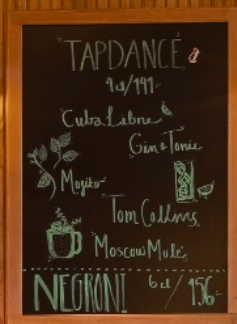 TAPDANCE
4cl/141-
Cuba Libre
Gin & Tonic
Mojito
Tom Collins
Moscow Mule
NEGRONI 6cl/156-